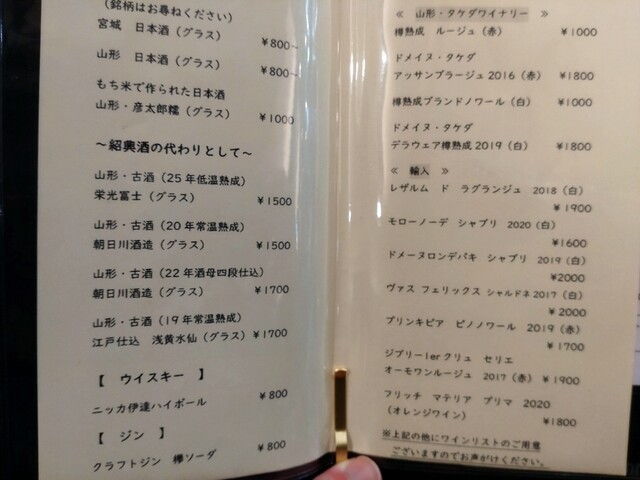 (銘柄はお尋ねください)
宮城 日本酒(グラス)
¥800~
山形 日本酒(グラス)
¥800~
もち米で作られた日本酒
山形・彦太郎糯(グラス)
¥1000
～紹興酒の代わりとして～
山形・古酒(25年低温熟成)
栄光冨士(グラス) ¥1500
山形・古酒(20年常温熟成)
朝日川酒造(グラス) ¥1500
山形・古酒(22年酒母四段仕込)
朝日川酒造(グラス) ¥1700
山形・古酒(19年常温熟成)
江戸仕込 浅黄水仙(グラス) ¥1700
【 ウイスキー 】
ニッカ伊達ハイボール ¥800
【 ジン 】
クラフトジン 欅ソーダ ¥800
≪ 山形・タケダワイナリー ≫
樽熟成 ルージュ(赤) ¥1000
ドメイヌ・タケダ
アッサンブラージュ2016(赤) ¥1800
樽熟成ブランドノワール(白) ¥1000
ドメイヌ・タケダ
デラウェア樽熟成2019(白) ¥1800
≪ 輸入 ≫
レザルム ド ラグランジュ 2018(白)
¥1900
モローノーデ シャブリ 2020(白)
¥1600
ドメーヌロンデパキ シャブリ 2019(白)
¥2000
ヴァス フェリックス シャルドネ2017(白)
¥2000
プリンキピア ピノノワール 2019(赤)
¥1700
ジブリー1erクリュ セリエ
オーモワンルージュ 2017(赤) ¥1900
フリッチ マテリア プリマ 2020
(オレンジワイン) ¥1800
※上記の他にワインリストのご用意
ございますのでお声がけください。